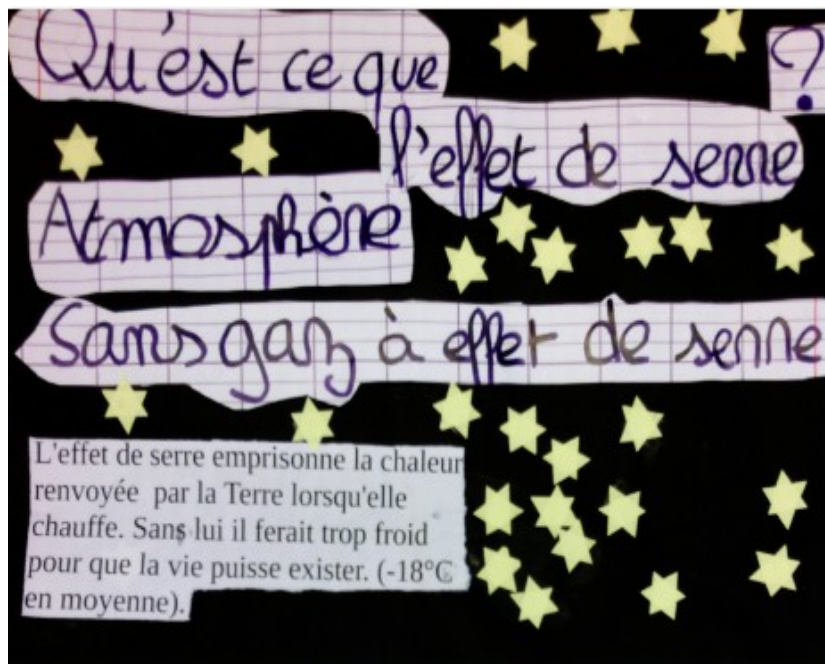 Qu'est ce que
?
l'effet de serre
Atmosphère
Sans gaz à effet de serre
L'effet de serre emprisonne la chaleur
renvoyée par la Terre lorsqu'elle
chauffe. Sans lui il ferait trop froid
pour que la vie puisse exister. (-18°C
en moyenne).